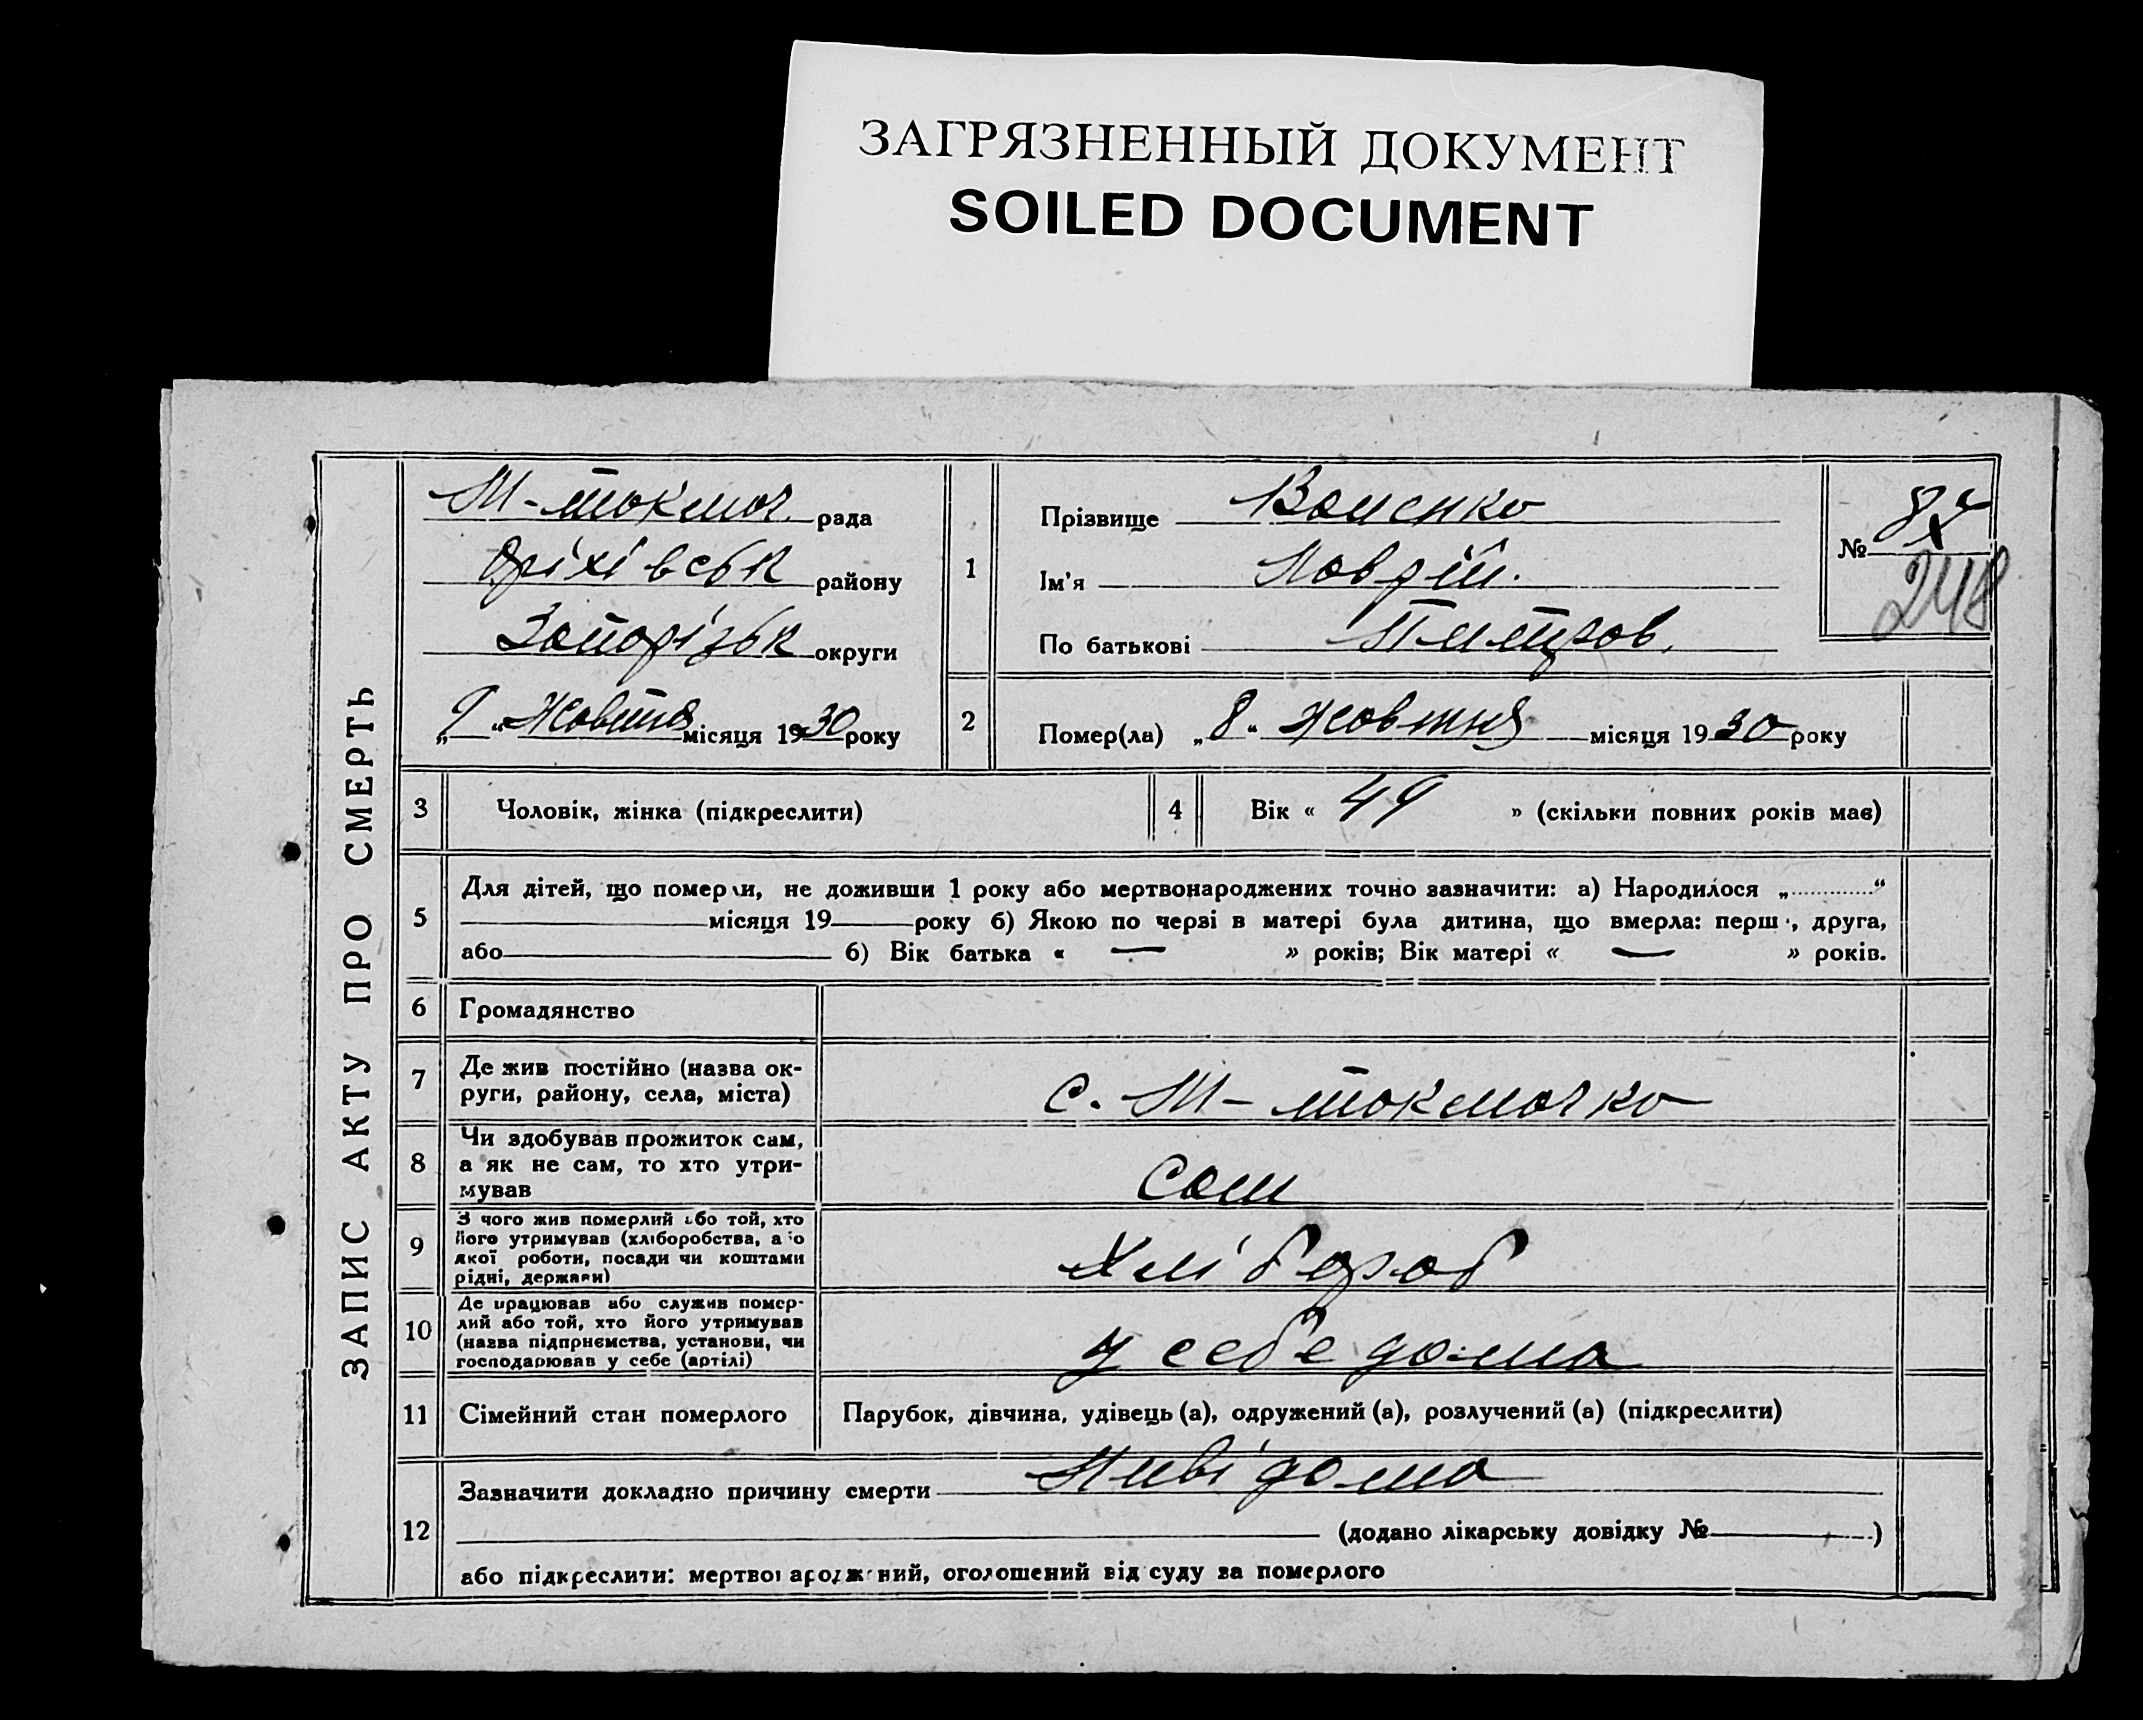 ЗАГРЯЗНЕННЫЙ ДОКУМЕНТ
SOILED DOCUMENT
ЗАПИС АКТУ ПРО СМЕРТЬ
М-токмач рада
Оріхівськ району
Запорізьк округи
„9“ Жовтня місяця 1930 року
1
Прізвище Ваненко
Ім'я Лаврін.
По батькові
№
248
2
Помер(ла) „8“ жовтня місяця 1930 року
3
Чоловік, жінка (підкреслити)
4
Вік « 49 » (скільки повних років має)
5
Для дітей, що померли, не доживши 1 року або мертвонароджених точно зазначити: а) Народилося „ “
місяця 19 року б) Якою по черзі в матері була дитина, що вмерла: перш, друга,
або б) Вік батька « — » років; Вік матері « — » років.
6
Громадянство
7
Де жив постійно (назва ок-
руги, району, села, міста)
с. М-токмачка
8
Чи здобував прожиток сам,
а як не сам, то хто утри-
мував
Сам
9
З чого жив померлий або той, хто
його утримував (хліборобства, або
якої роботи, посади чи коштами
рідні, держави)
Хлібороб
10
Де працював або служив помер-
лий або той, хто його утримував
(назва підприємства, установи, чи
господарював у себе (артілі)
у себе дома
11
Сімейний стан померлого
Парубок, дівчина, удівець (а), одружений (а), розлучений (а) (підкреслити)
12
Зазначити докладно причину смерти Нивідома
(додано лікарську довідку № )
або підкреслити: мертвонароджений, оголошений від суду за померлого